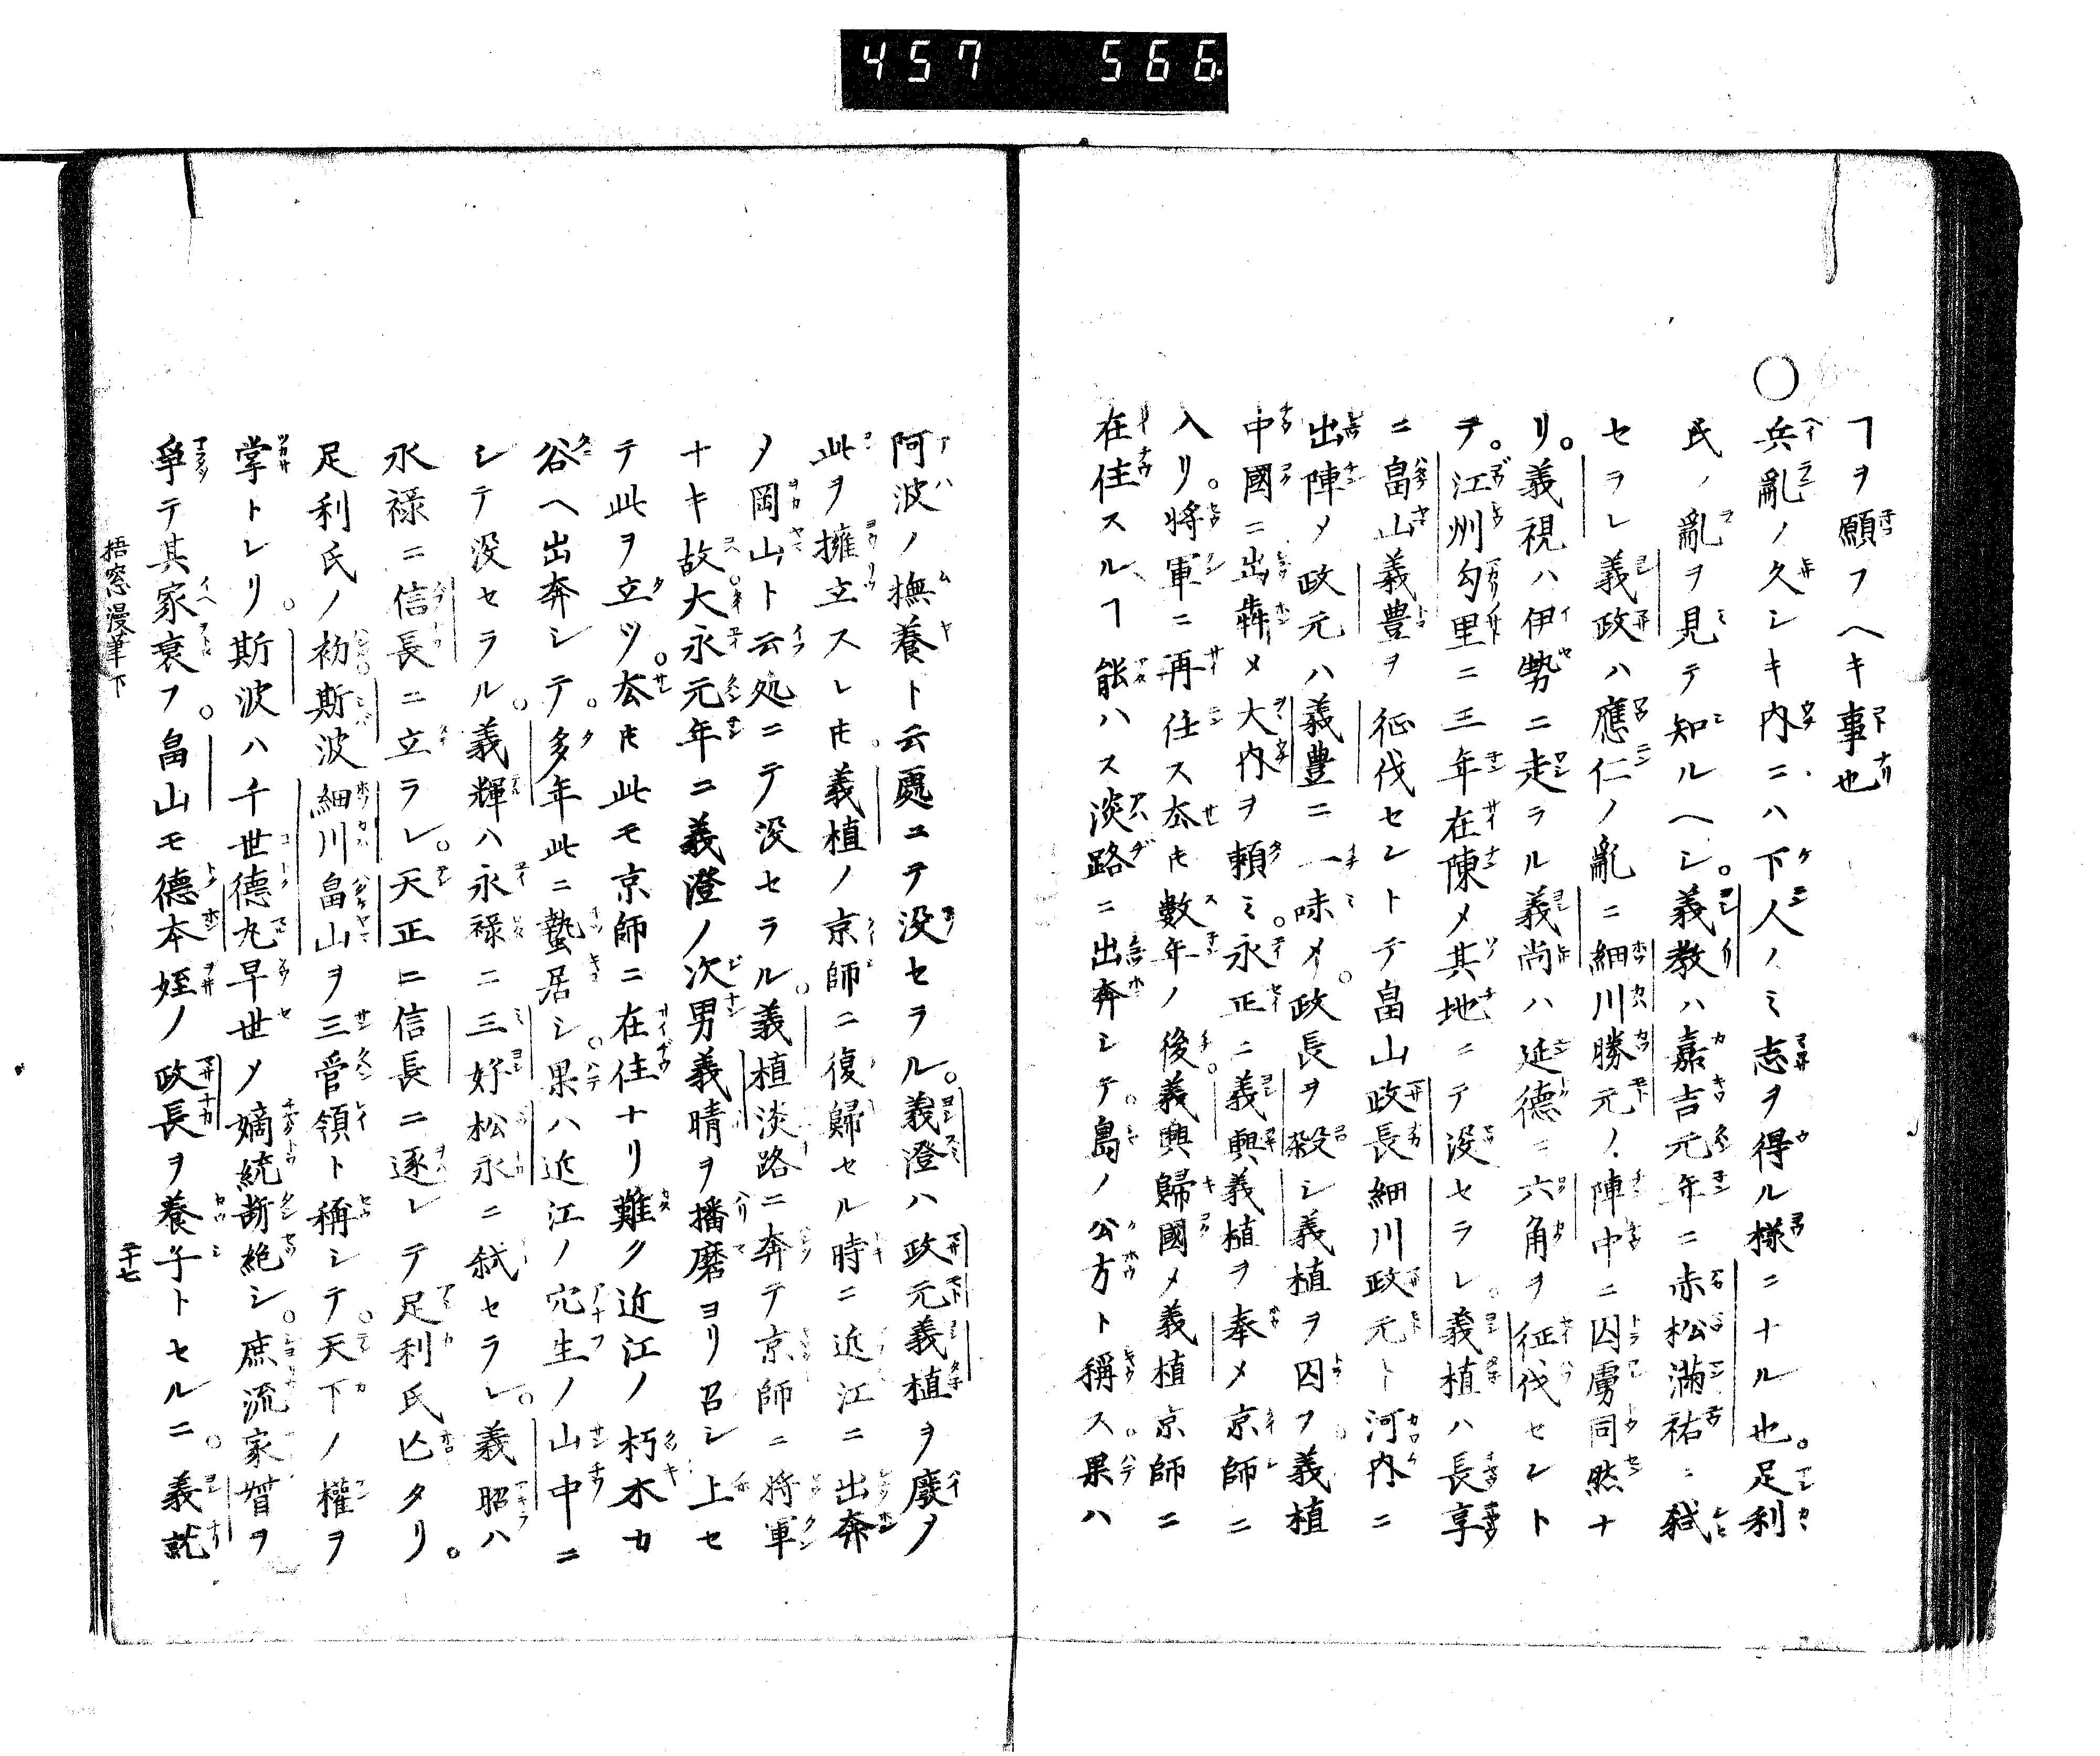 457 566
ヿヲ願フヘキ事也
○兵亂ノ久シキ内ニハ下人ノミ志ヲ得ル様ニナル也。足利
氏ノ亂ヲ見テ知ルヘシ。義教ハ嘉吉元年ニ赤松滿祐ニ弑
セラレ義政ハ應仁ノ亂ニ細川勝元ノ陣中ニ囚虜同然ナ
リ。義視ハ伊勢ニ走ラル義尚ハ延德ニ六角ヲ征伐セント
テ。江州勾里ニ三年在陳メ其地ニテ没セラレ。義植ハ長享
ニ畠山義豊ヲ征伐セントテ畠山政長細川政元ト河内ニ
出陣メ政元ハ義豊ニ一味メ。政長ヲ殺シ義植ヲ囚フ義植
中國ニ出犇メ大内ヲ頼ミ。永正ニ義興義植ヲ奉メ京師ニ
入リ。將軍ニ再任ス夲𪜈數年ノ後。義興歸國メ義植京師ニ
在住スルヿ能ハス淡路ニ出奔シテ。島ノ公方ト稱ス。果ハ
阿波ノ撫養ト云處ニテ没セラル。義澄ハ政元義植ヲ廢ノ
此ヲ擁立スレ𪜈。義植ノ京師ニ復歸セル時ニ近江ニ出奔
メ岡山ト云処ニテ没セラル。義植淡路ニ奔テ京師ニ將軍
ナキ故。大永元年ニ義澄ノ次男義晴ヲ播磨ヨリ召シ上セ
テ此ヲ立ツ。夲𪜈此モ京師ニ在住ナリ難ク近江ノ朽木カ
谷ヘ出奔シテ。多年此ニ蟄居シ。果ハ近江ノ穴生ノ山中ニ
シテ没セラル。義輝ハ永禄ニ三好松永ニ弑セラレ。義昭ハ
永禄ニ信長ニ立ラレ。天正ニ信長ニ逐レテ足利氏亡タリ。
足利氏ノ初斯波細川畠山ヲ三管領ト稱シテ。天下ノ權ヲ
掌トレリ。斯波ハ千世德丸早世メ嫡統断絶シ。庶流家督ヲ
爭テ其家衰フ。畠山モ德本姪ノ政長ヲ養子トセルニ。義就
梧窓漫筆下
二十七